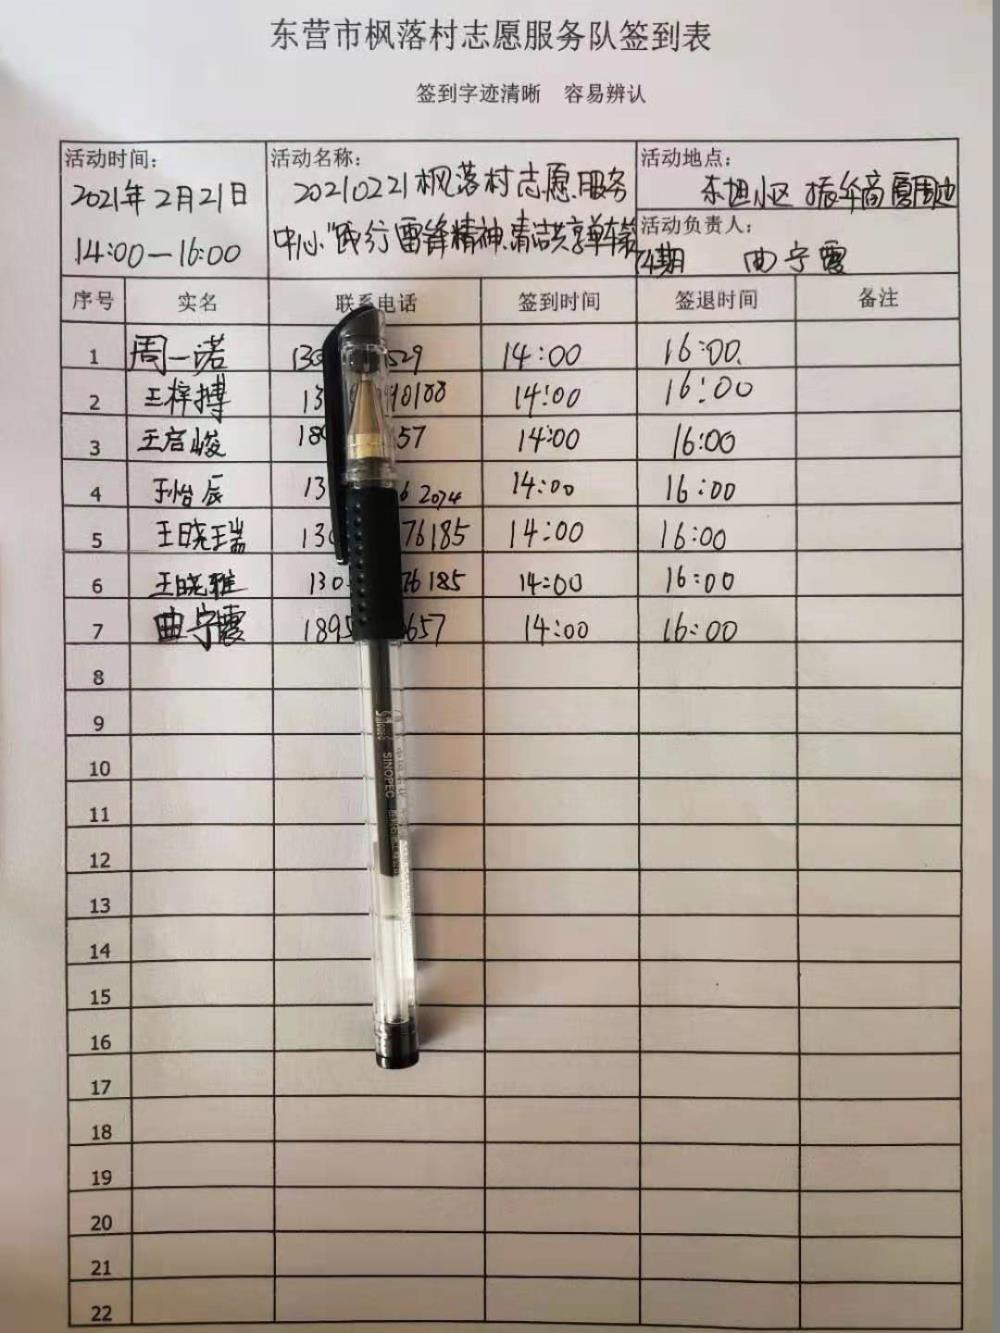 东营市枫落村志愿服务队签到表
签到字迹清晰 容易辨认
活动时间: 活动名称: 活动地点:
2021年2月21日 20210221枫落村志愿服务 振华商厦周边
14:00—16:00 中心"践行雷锋精神、清洁共享单车第74期
活动负责人: 曲宁霞
序号 实名 联系电话 签到时间 签退时间 备注
1 周一诺 130 529 14:00 16:00
2 王梓搏 13 90188 14:00 16:00
3 王启峻 189 57 14:00 16:00
4 怡辰 13 6 2074 14:00 16:00
5 王晓瑞 130 76185 14:00 16:00
6 王晓雅 130 76185 14:00 16:00
7 曲宁霞 1895 657 14:00 16:00
8
9
10
11
12
13
14
15
16
17
18
19
20
21
22
SINOPEC